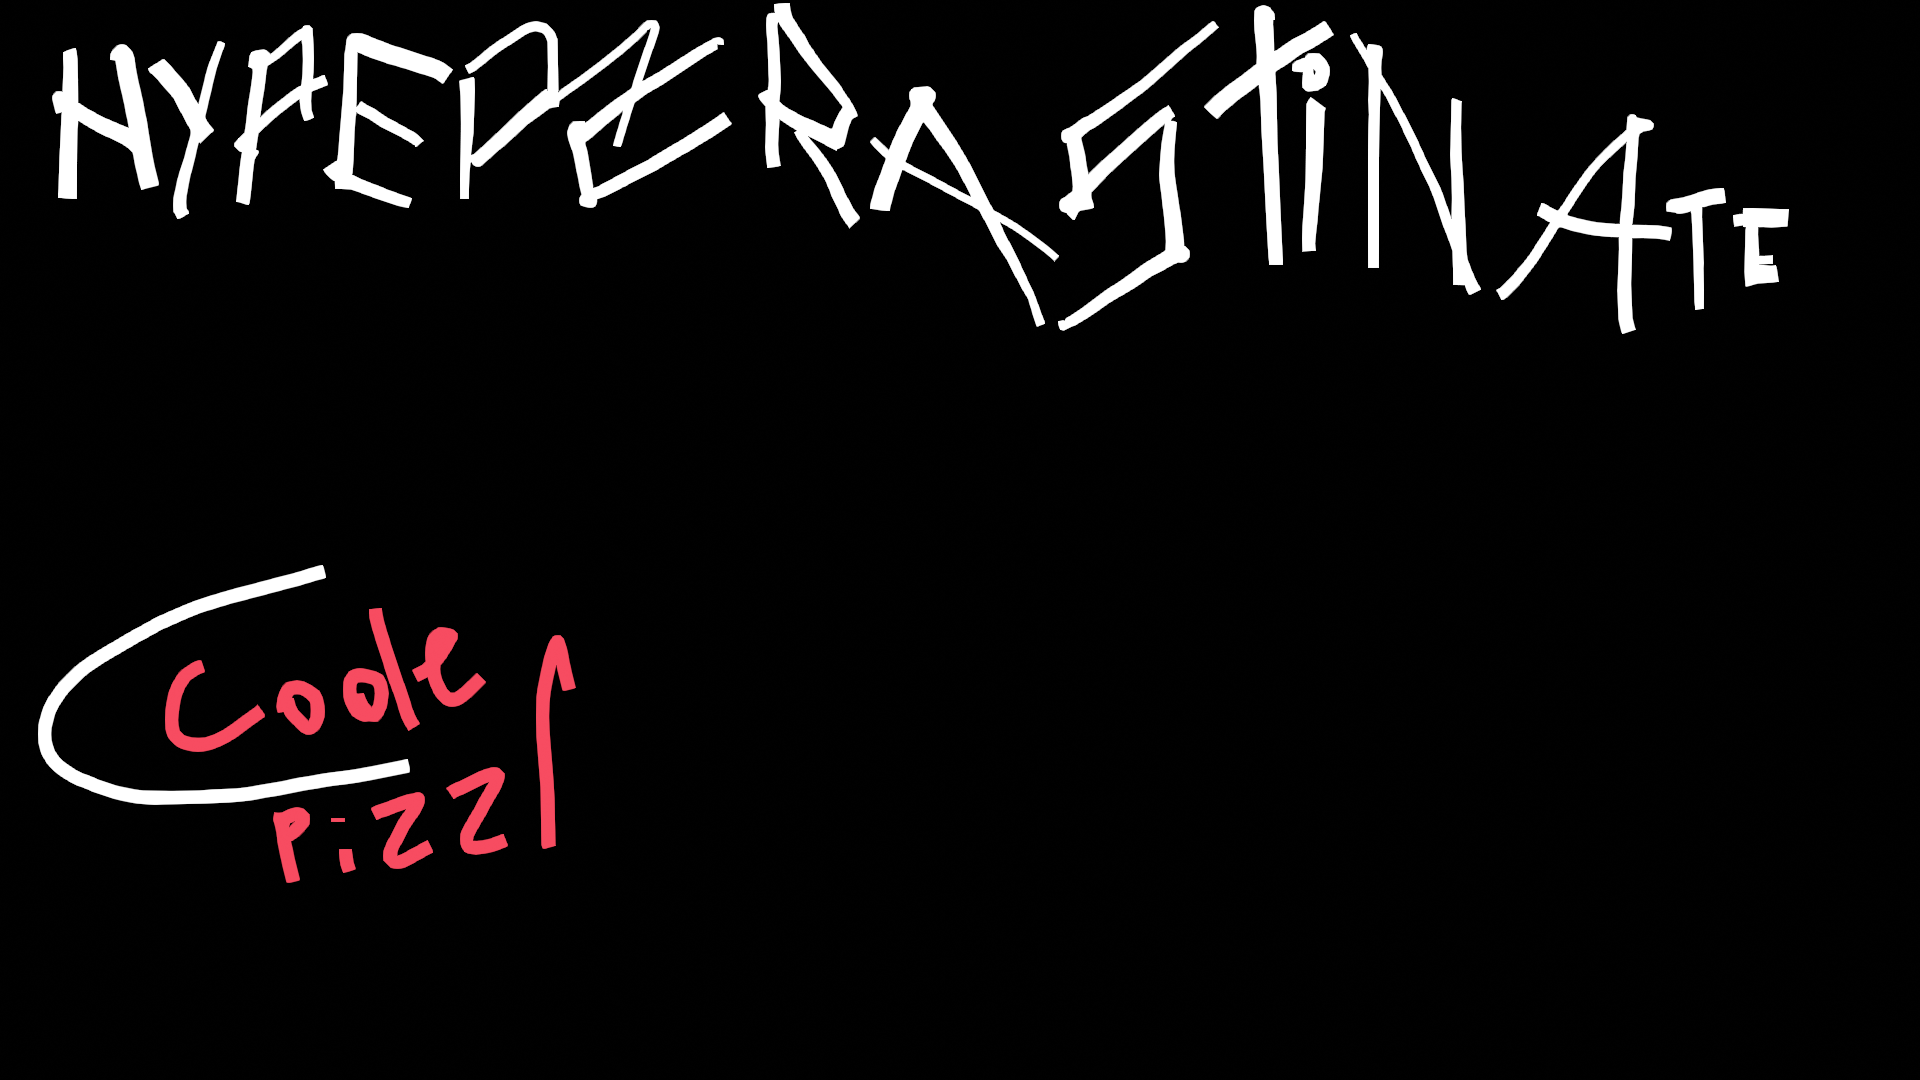 HYPEDERASTINATE
Code
Pizz1